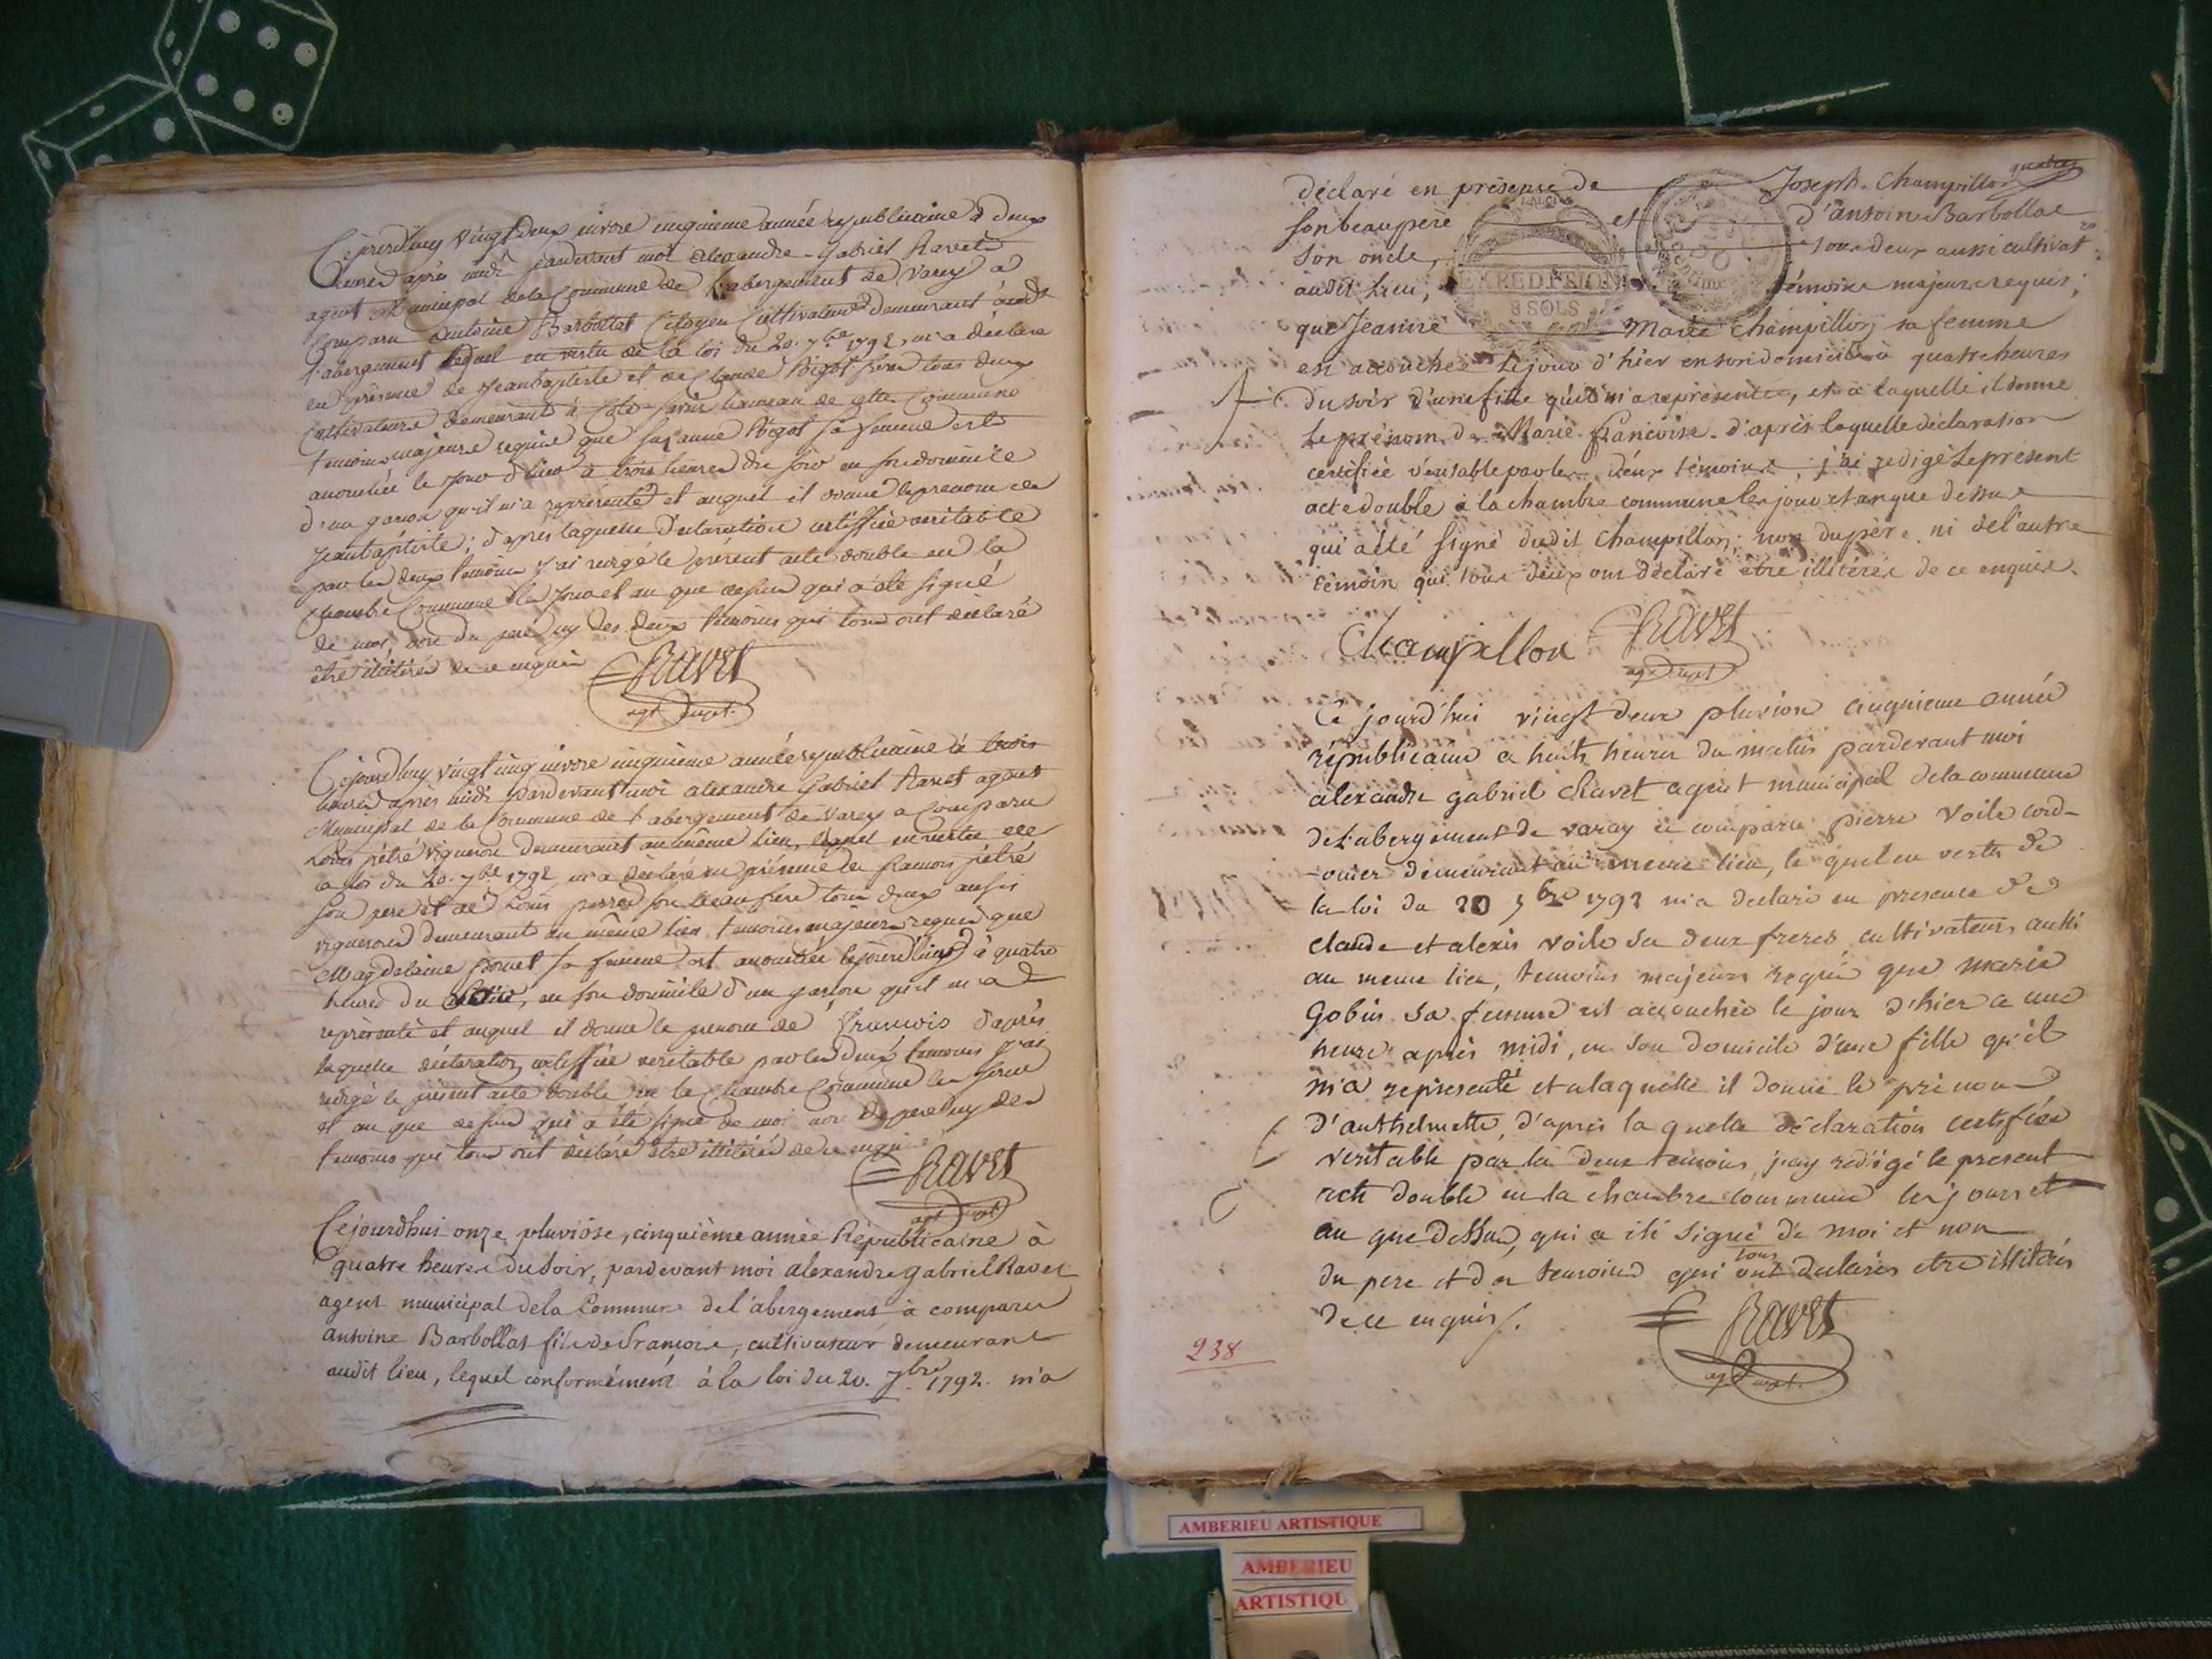 Cejourdhuy vingt deux nivose cinquieme année republicaine à deux
heures après midi pardevant moi alexandre Gabriel Ravet
agent Municipal dela Commune de L'abergement de Varey a
Comparu Antoine Barbollat Citoyen Cultivateur demeurant audt
L'abergement lequel en vertu de la loi du 20. 7bre 1792, m'a déclaré
en présence de Jeanbaptiste et de Claude Bigot freres tous deux
Cultivateurs demeurant à hameau de cette Commune
temoins majeurs requis que Suzanne Bigot sa femme est
accouchée le jour d'hier à trois heures du soir en son domicile
d'un garcon qu'il m'a représenté et auquel il donne le prenom de
Jeanbaptiste; d'après laquelle déclaration certiffiée veritable
par les deux temoins j'ai redigé le présent acte double en la
chambre Commune les jour et an que dessus qui a été signé
de moi, non du pere ny des deux temoins qui tous ont déclaré
être illitérés de ce enquis
Ravet
agt mpal.
Cejourdhuy vingt cinq nivose cinquième année republicaine à trois
heures après midi pardevant moi alexandre Gabriel Ravet agent
Municipal de la Commune de L'abergement de Varey a Comparu
Louis pétré vigneron demeurant au même lieu, lequel en vertu de
la loi du 20. 7bre 1792 m'a déclaré en présence de francois pétré
son pere et de Louis son beau frere tous deux aussi
vignerons demeurant au même lieu temoins majeurs requis que
Magdelaine sa femme est accouchée à quatre
heures du en son domicile d'un garcon qu'il m'a
représenté et auquel il donne le prenom de francois d'après
laquelle déclaration certiffiée veritable par les deux temoins j'ai
redigé le présent acte double en la Chambre Commune les jour
et an que dessus qui a été signé de moi non du pere ny des
temoins qui tous ont déclaré être illitérés de ce enquis
Ravet
agt mpal
Cejourdhui onze pluviôse, cinquième année Républicaine à
quatre heures du soir, pardevant moi alexandre gabriel Ravet
agent municipal dela Commune de l'abergement à comparu
antoine Barbollat fils de francois, cultivateur demeurant
audit lieu, lequel conformément à la loi du 20. 7bre 1792. m'a
déclaré en présence de Joseph Champillon
son beaupere et d'antoine Barbollat
son oncle, tous deux aussi cultivat.rs
audit lieu, témoins majeurs requis;
EXPEDITION
8 SOLS
que Jeanne Marie Champillon sa femme
est accouchée le jour d'hier en son domicile à quatre heures
du soir d'une fille qu'il m'a représentée, et à laquelle il donne
le prénom de Marie francoise. d'après laquelle déclaration
certifiée véritable par les deux témoins, j'ai redigé le présent
acte double à la chambre commune les jour et an que dessus
qui a été signé dudit Champillon; non du père. ni de l'autre
témoin qui tous deux ont déclaré être illitérés de ce enquis.
Champillon Ravet
agt mpal
Ce jourd'hui vingt deux pluviose cinquieme année
républicaine a huit heures du matin pardevant moi
alexandre gabriel Ravet agent municipal dela commune
de Labergement de varay a comparu pierre Voile cord-
-onier demeurant au meme lieu, le quel en vertu de
la loi du 20 7bre 1792 m'a declaré en presence de
claude et alexis voile ses deux freres cultivateurs aussi
au meme lieu, temoins majeurs requis que marie
Gobin sa femme est accouchée le jour d'hier a une
heure après midi, en son domicile d'une fille qu'il
m'a representé et a laquelle il donne le prenom
d'anthelmette, d'apres la quelle déclaration certifiée
veritable par les deux temoins, j'ay redigé le present
acte double en la chambre commune les jours et
an que dessus, qui a été signé de moi et non
du pere et des temoins qui tous ont declarés etre illitérés
de ce enquis.
Ravet
agt mpal.
238
AMBERIEU ARTISTIQUE
AMBERIEU
ARTISTIQU